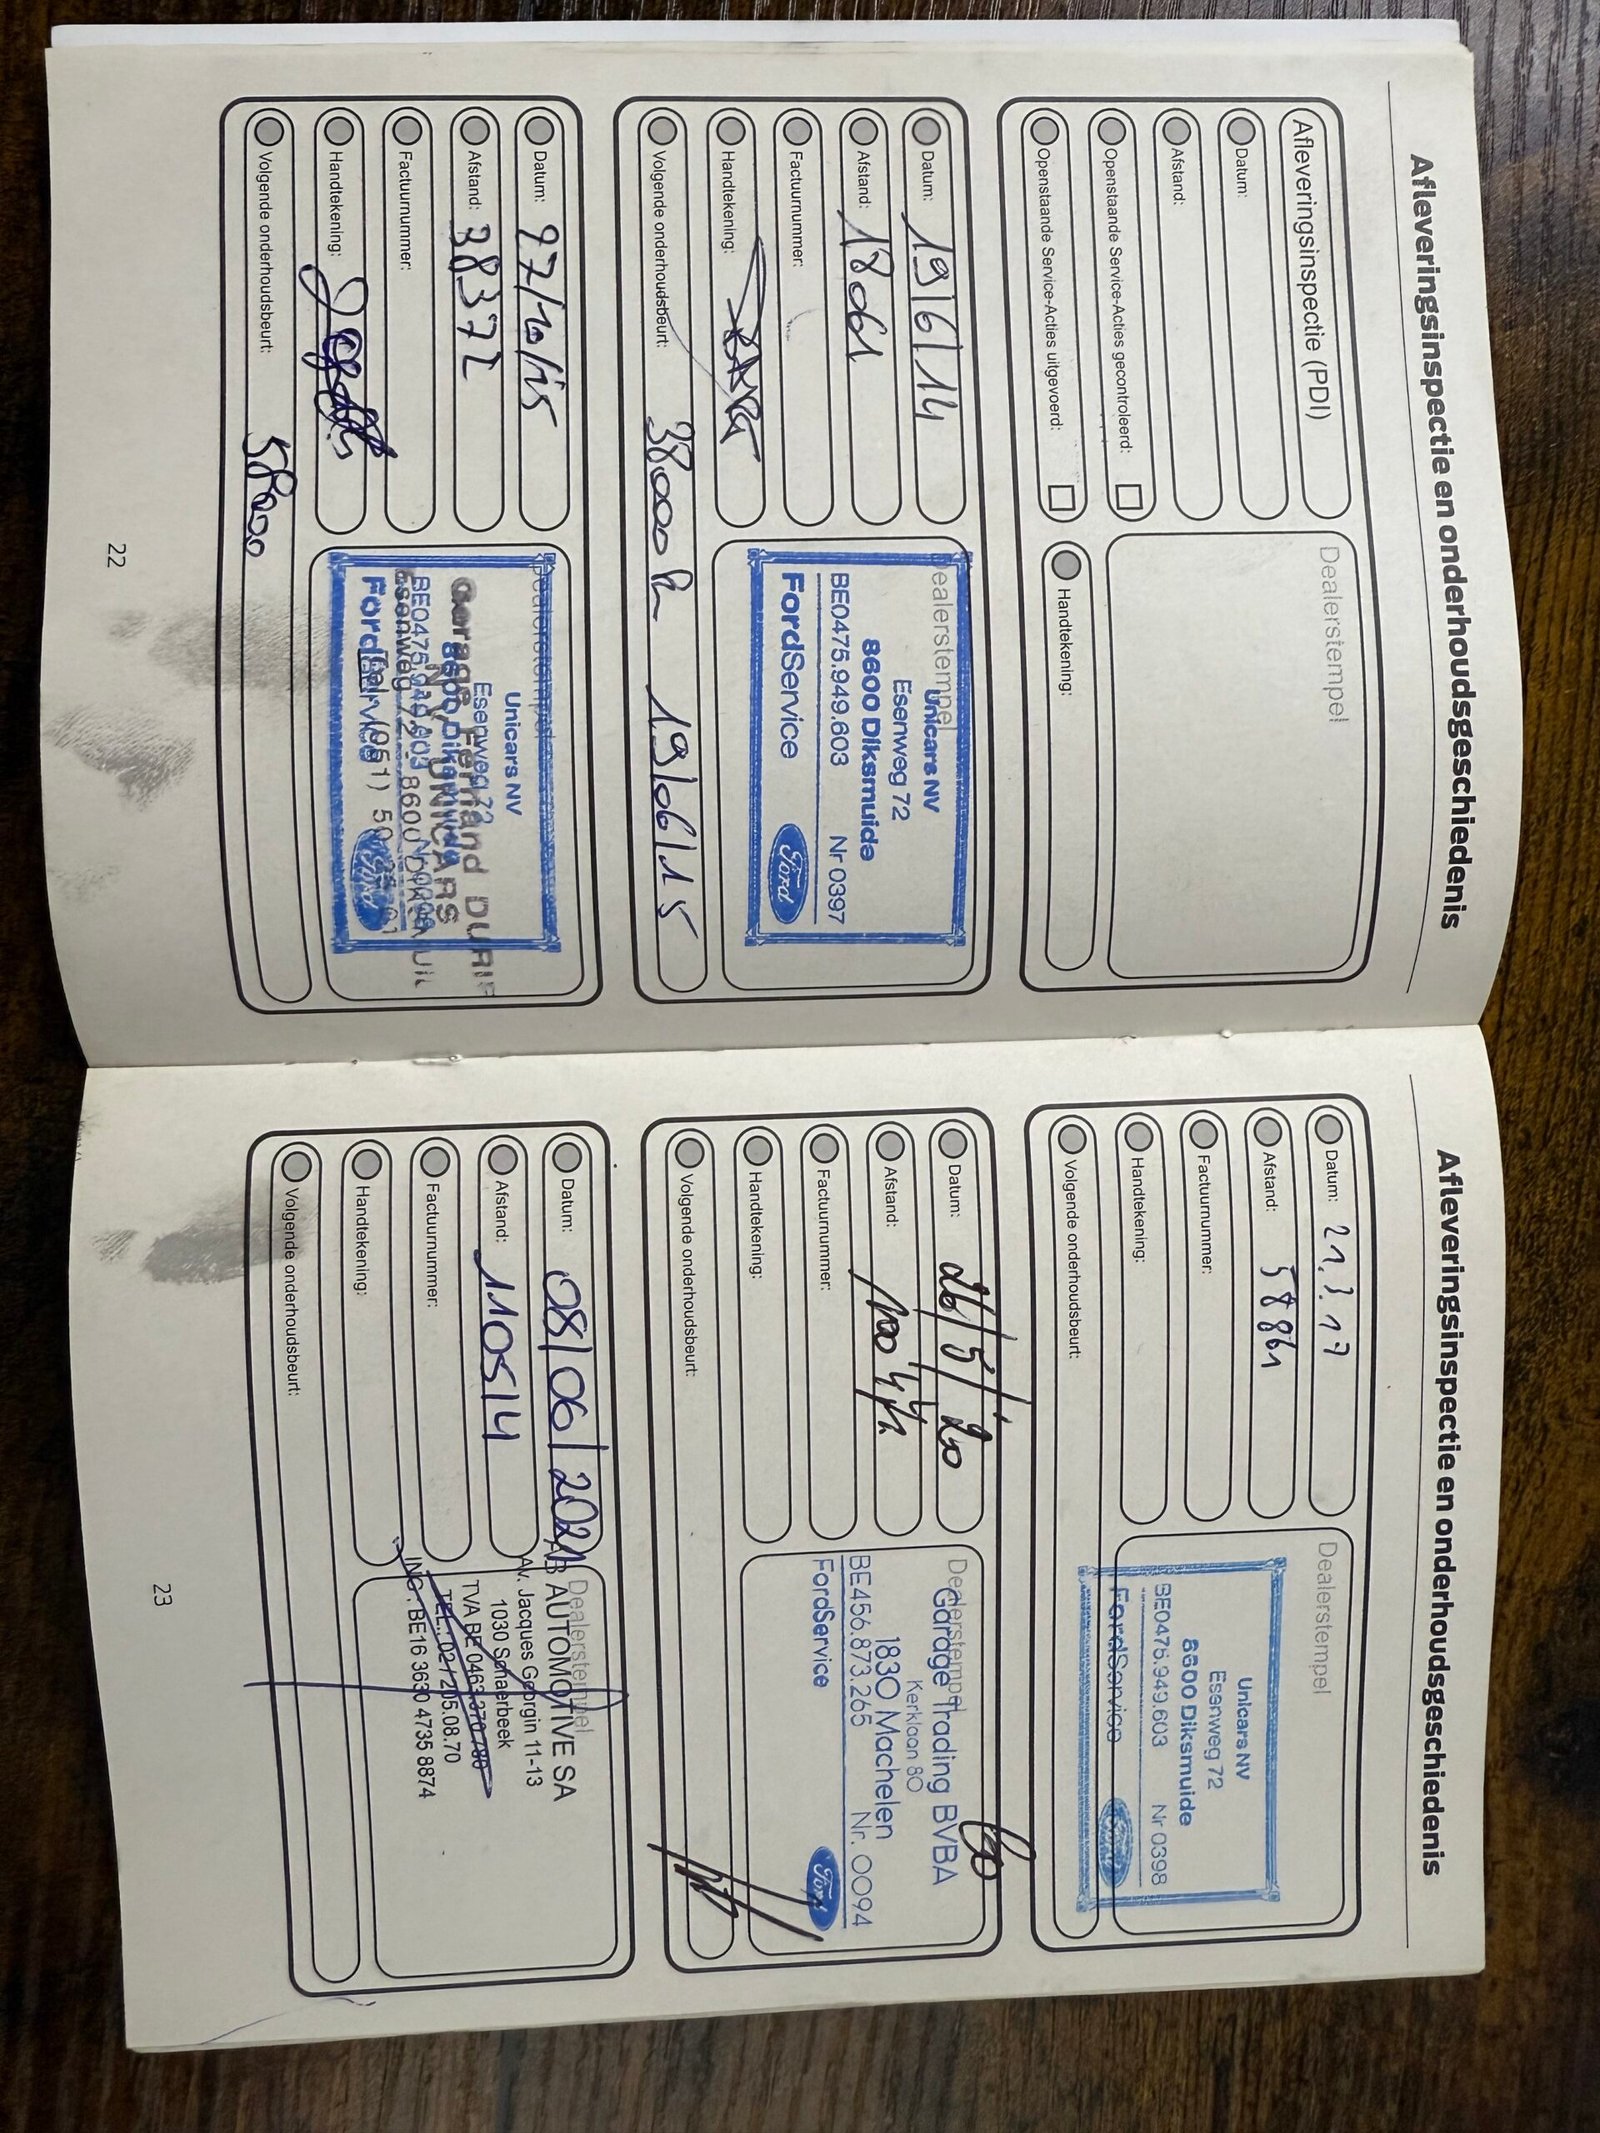 Afleveringsinspectie en onderhoudsgeschiedenis
Afleveringsinspectie (PDI)
Datum:
Afstand:
Openstaande Service-Acties gecontroleerd:
Openstaande Service-Acties uitgevoerd:
Dealerstempel
Handtekening:
Datum: 19/6/14
Afstand: 18061
Factuurnummer:
Handtekening:
Volgende onderhoudsbeurt: 38000 19/06/15
Dealerstempel
Unicars NV
Esenweg 72
8600 Diksmuide
BE0475.949.603 Nr 0397
FordService
Ford
Datum: 27/10/15
Afstand: 38372
Factuurnummer:
Handtekening:
Volgende onderhoudsbeurt: 58000
Dealerstempel
Unicars NV
Esenweg 72
8600 Diksmuide
BE0475.949.603
FordService
Ford
Garage Fernand
N.V. UNICARS
Esenweg 72 - 8600
Tel. (051) 50
22
Afleveringsinspectie en onderhoudsgeschiedenis
Datum: 21.3.17
Afstand: 58861
Factuurnummer:
Handtekening:
Volgende onderhoudsbeurt:
Dealerstempel
Unicars NV
Esenweg 72
8600 Diksmuide
BE0475.949.603 Nr 0398
FordService
Ford
Datum: 26/5/20
Afstand:
Factuurnummer:
Handtekening:
Volgende onderhoudsbeurt:
Dealerstempel
Garage Trading BVBA
Kerklaan 80
1830 Machelen
BE456.873.265 Nr. 0094
FordService
Ford
Datum: 08/06/2021
Afstand: 110514
Factuurnummer:
Handtekening:
Volgende onderhoudsbeurt:
Dealerstempel
AB AUTOMOTIVE SA
Av. Jacques Georgin 11-13
1030 Schaerbeek
TVA BE 0463.370.780
TEL.: 02/205.08.70
ING: BE16 3630 4735 8874
23